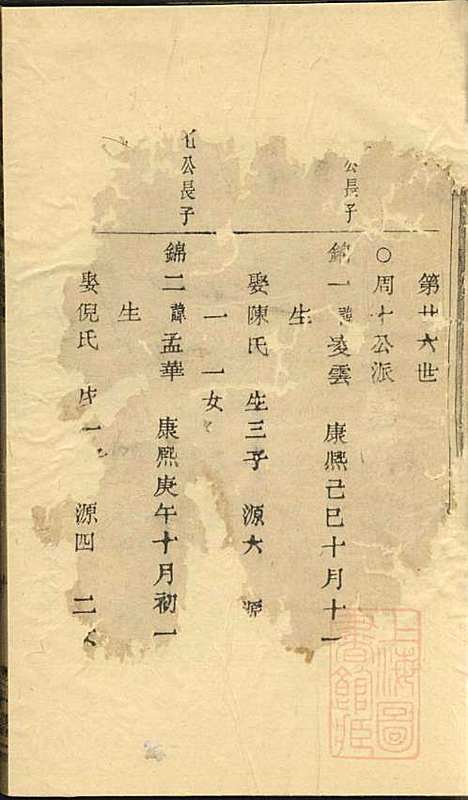 第廿六世
○周十公派
公長子
錦一諱凌雲 康熙己巳十月十一
生
娶陳氏 生三子 源六 源
一 一女
公長子
錦二諱孟華 康熙庚午十月初一
生
娶倪氏 生一 源四 二
上海圖書館藏